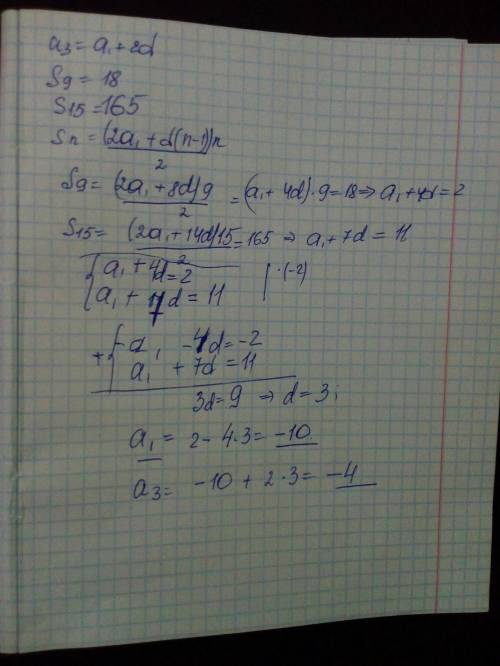 a₃ = a₁ + 2d
S₉ = 18
S₁₅ = 165
Sn = (2a₁ + d(n-1))n / 2
S₉ = (2a₁ + 8d)9 / 2 = (a₁ + 4d)·9 = 18 ⇒ a₁ + 4d = 2
S₁₅ = (2a₁ + 14d)15 / 2 = 165 ⇒ a₁ + 7d = 11
{ a₁ + 4d = 2 | ·(-2)
a₁ + 7d = 11
+ { -a₁ - 4d = -2
a₁ + 7d = 11
3d = 9 ⇒ d = 3;
a₁ = 2 - 4·3 = -10.
a₃ = -10 + 2·3 = -4